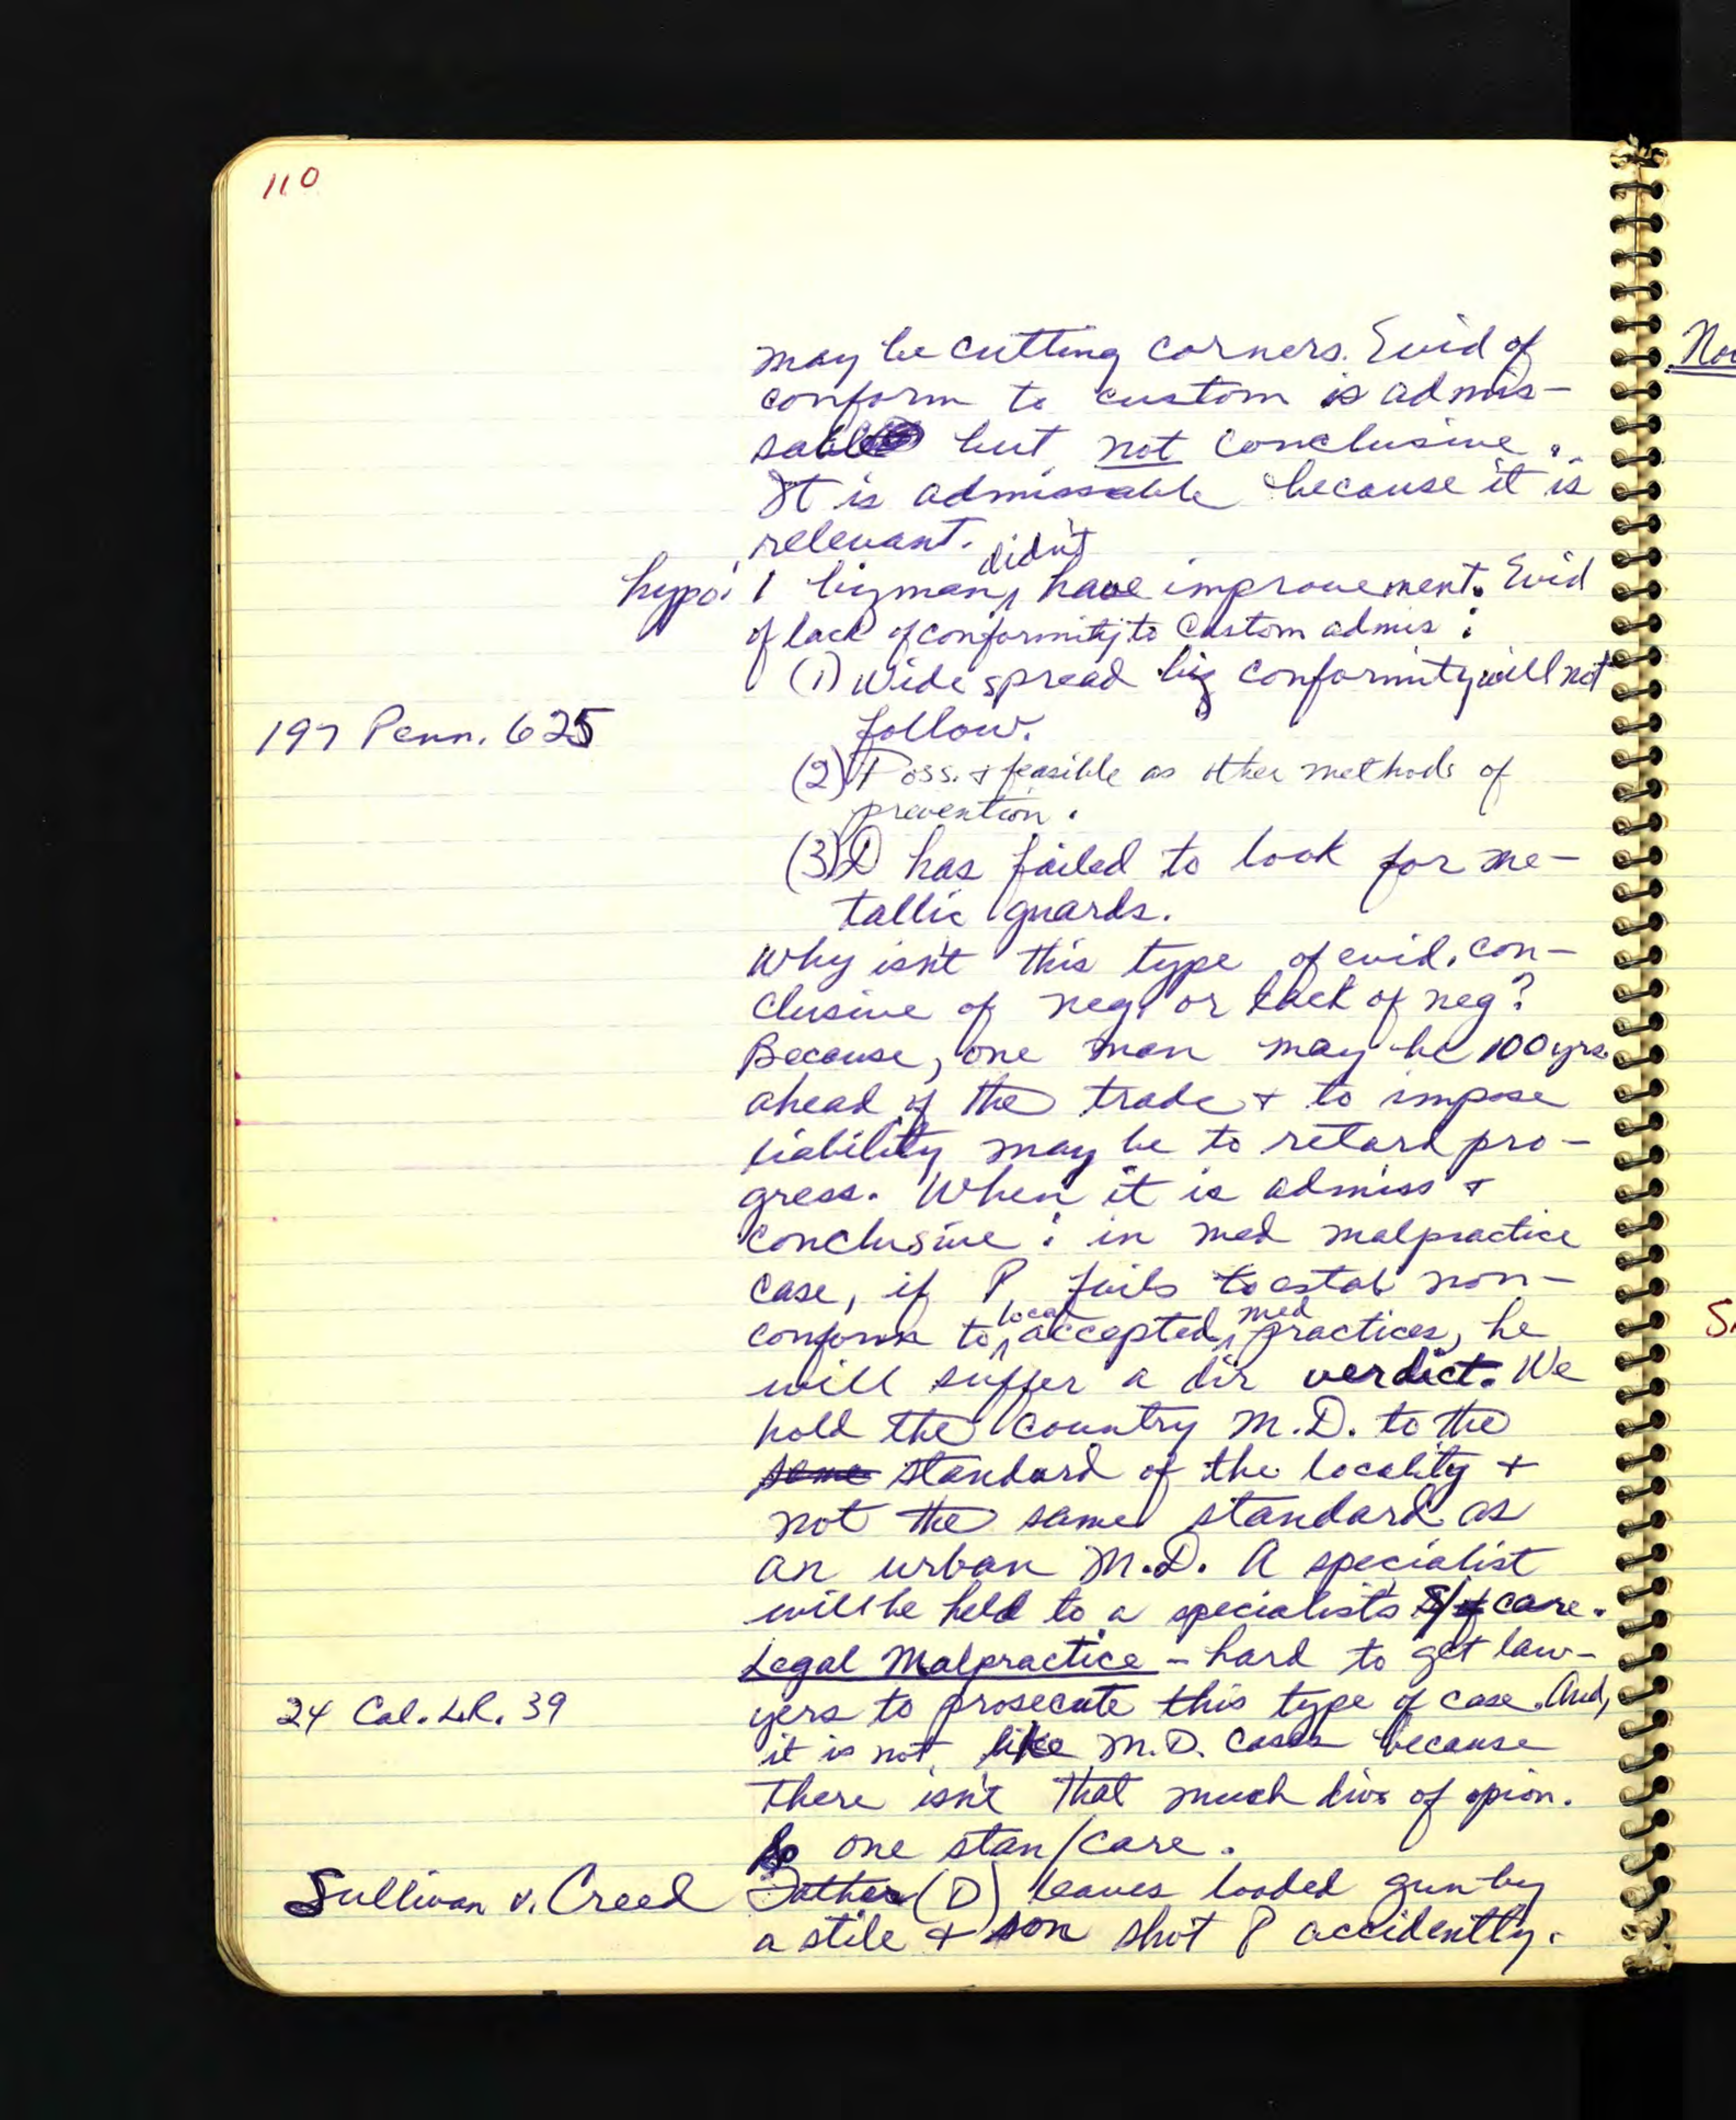 110
may be cutting corners. Evid of
conform to custom is admis-
sable but not conclusive.
It is admissable because it is
relevant.
hypo: 1 bizman didn't have improvement. Evid
of lack of conformity to custom admis:
(1) Wide spread biz conformity will not
follow.
197 Penn. 625
(2) Poss. & feasible as other methods of
prevention.
(3) D has failed to look for me-
tallic guards.
Why isn't this type of evid. con-
clusive of neg. or lack of neg?
Because, one man may be 100 yrs.
ahead of the trade & to impose
liability may be to retard pro-
gress. When it is admiss &
conclusive: in med malpractice
case, if P fails to estab non-
conform to local accepted med practices, he
will suffer a dir verdict. We
hold the country M.D. to the
same standard of the locality &
not the same standard as
an urban M.D. A specialist
will be held to a specialists care.
Legal Malpractice - hard to get law-
24 Cal. L.R. 39
yers to prosecute this type of case. And,
it is not like M.D. cases because
there isn't that much div of opion.
So one stan/care.
Sullivan v. Creed
Father (D) leaves loaded gun by
a stile & son shot P accidently.